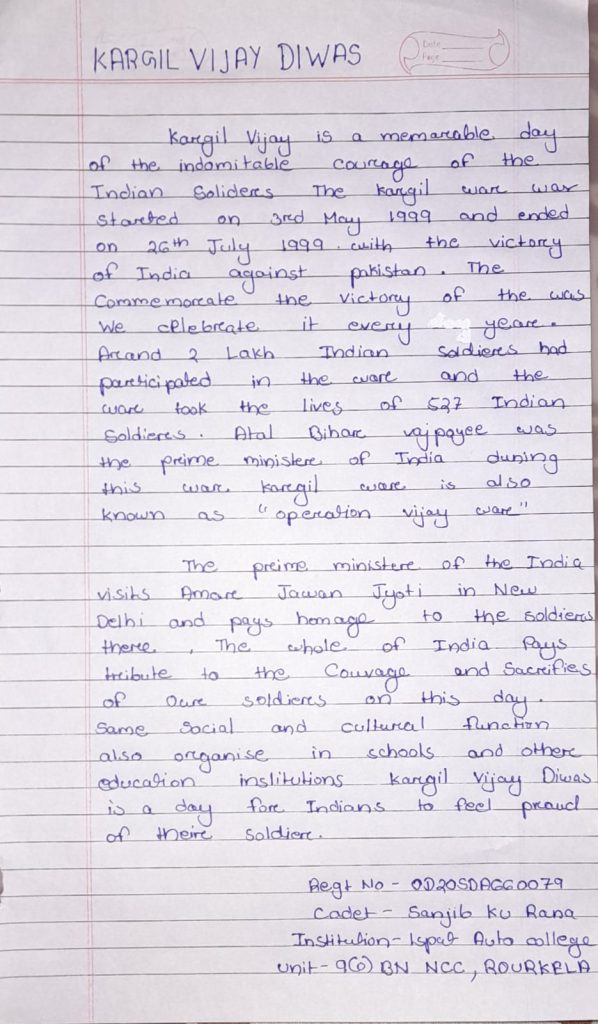 KARGIL VIJAY DIWAS
Date
Page
Kargil Vijay is a memorable day
of the indomitable courage of the
Indian Soliders The Kargil ware war
started on 3rd May 1999 and ended
on 26th July 1999. with the victory
of India against pakistan. The
Commemorate the victory of the was
We celebrate it every yeare.
Arcand 2 Lakh Indian soldieres had
participated in the ware and the
ware took the lives of 527 Indian
Soldieres. Atal Bihar vajpayee was
the preime ministere of India duning
this ware. Karegil ware is also
known as "operation vijay ware"
The preime ministere of the India
visits Amare Jawan Jyoti in New
Delhi and pays homage to the soldieres
there. The whole of India Pays
tribute to the Couvage and Sacrifies
of Oure soldieres on this day.
Same Social and cultural function
also organise in schools and othere
education institutions Kargil Vijay Diwas
is a day fore Indians to feel proud
of theire soldiere.
Regt No - OD20SDAGG0079
Cadet - Sanjib Ku Rana
Institution - Ispat Auto college
unit - 9(O) BN NCC, ROURKELA